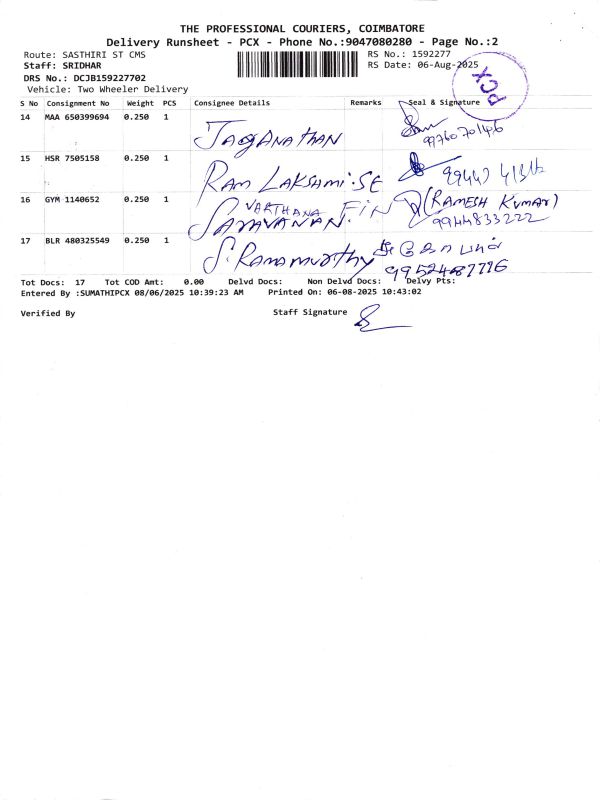 THE PROFESSIONAL COURIERS, COIMBATORE
Delivery Runsheet - PCX - Phone No.:9047080280 - Page No.:2
Route: SASTHIRI ST CMS RS No.: 1592277
Staff: SRIDHAR RS Date: 06-Aug-2025
DRS No.: DCJB159227702
Vehicle: Two Wheeler Delivery
PCX
S No Consignment No Weight PCS Consignee Details Remarks Seal & Signature
14 MAA 650399694 0.250 1 JAGGANATHAN 9976070146
15 HSR 7505158 0.250 1 RAM LAKSHMI.SE
16 GYM 1140652 0.250 1 VARTHANA FIN (RAMESH KUMAR)
SARAVANAN. 9944833222
17 BLR 480325549 0.250 1 S.Ramamurthy
9952487776
Tot Docs: 17 Tot COD Amt: 0.00 Delvd Docs: Non Delvd Docs: Delvy Pts:
Entered By :SUMATHIPCX 08/06/2025 10:39:23 AM Printed On: 06-08-2025 10:43:02
Verified By Staff Signature